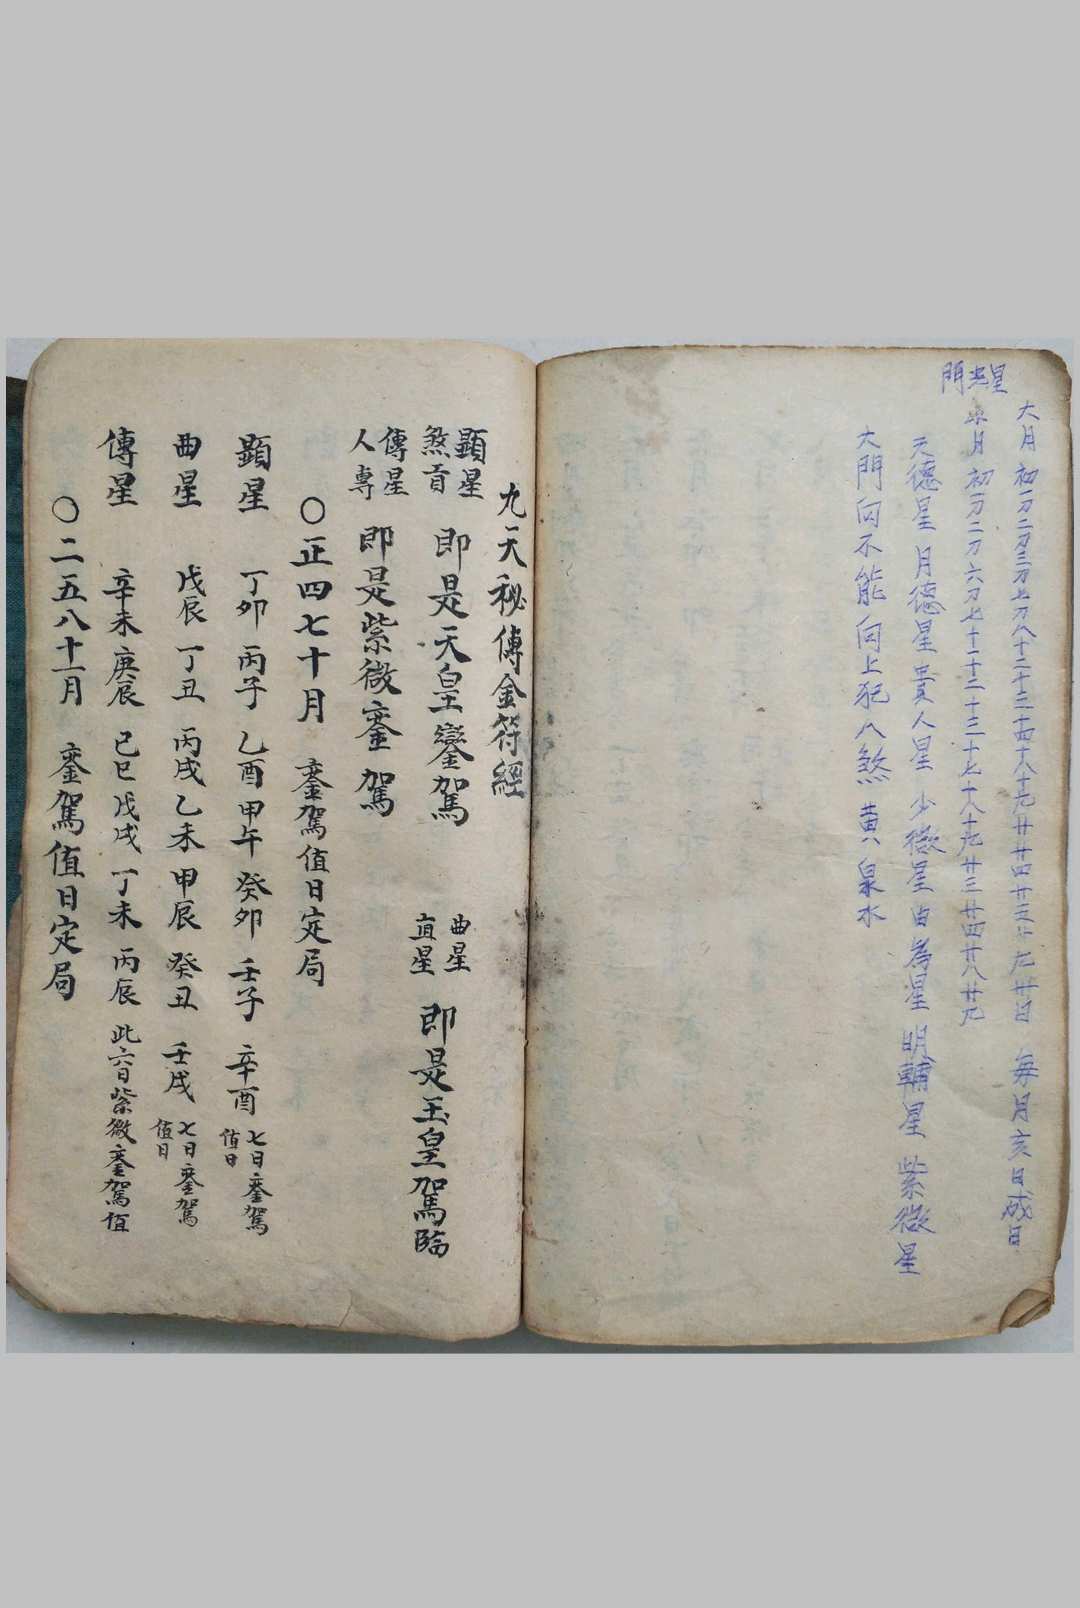 門光星
大月 初一刀二刀三刀七刀八十二十三十四十八十九廿廿四廿 九廿日 每月亥日成日
小月 初一刀二刀六刀七十一十二十三十七十八十九廿三廿四廿八廿九
天德星 月德星 貴人星 少微星 由為星 明輔星 紫微星
大門向不能向上犯八煞黃泉水
九天秘傳金符經
顯星
煞貢 即是天皇鑾駕
曲星
直星 即是玉皇駕臨
傳星
人專 即是紫微鑾駕
〇正四七十月 鑾駕值日定局
顯星 丁卯 丙子 乙酉 甲午 癸卯 壬子 辛酉 七日鑾駕值日
曲星 戊辰 丁丑 丙戌 乙未 甲辰 癸丑 壬戌 七日鑾駕值日
傳星 辛未 庚辰 己巳 戊戌 丁未 丙辰 此六日紫微鑾駕值
〇二五八十一月 鑾駕值日定局